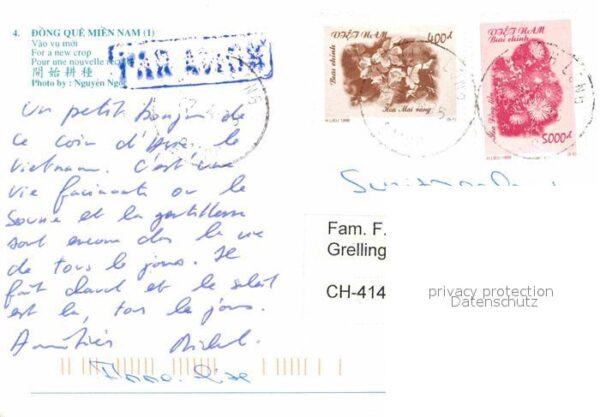 4. ĐỒNG QUÊ MIỀN NAM (1)
Vào vụ mới
For a new crop
Pour une nouvelle
開始耕種
Photo by : Nguyên Ngọ
PAR AVION
VIỆT NAM
Bưu chính
400đ
Hoa Mai vàng
VIỆT NAM
Bưu chính
5000đ
Un petit bonjour de
ce coin d'Asie. le
Vietnam. C'est une
vie fascinante ou le
Sourire et la gentillesse
sont encore dans la vie
de tous le jours. Il
fait chaud et le soleil
est la, tous le jours.
Amitiés Michel.
Fam. F.
Grelling
CH-414
privacy protection
Datenschutz